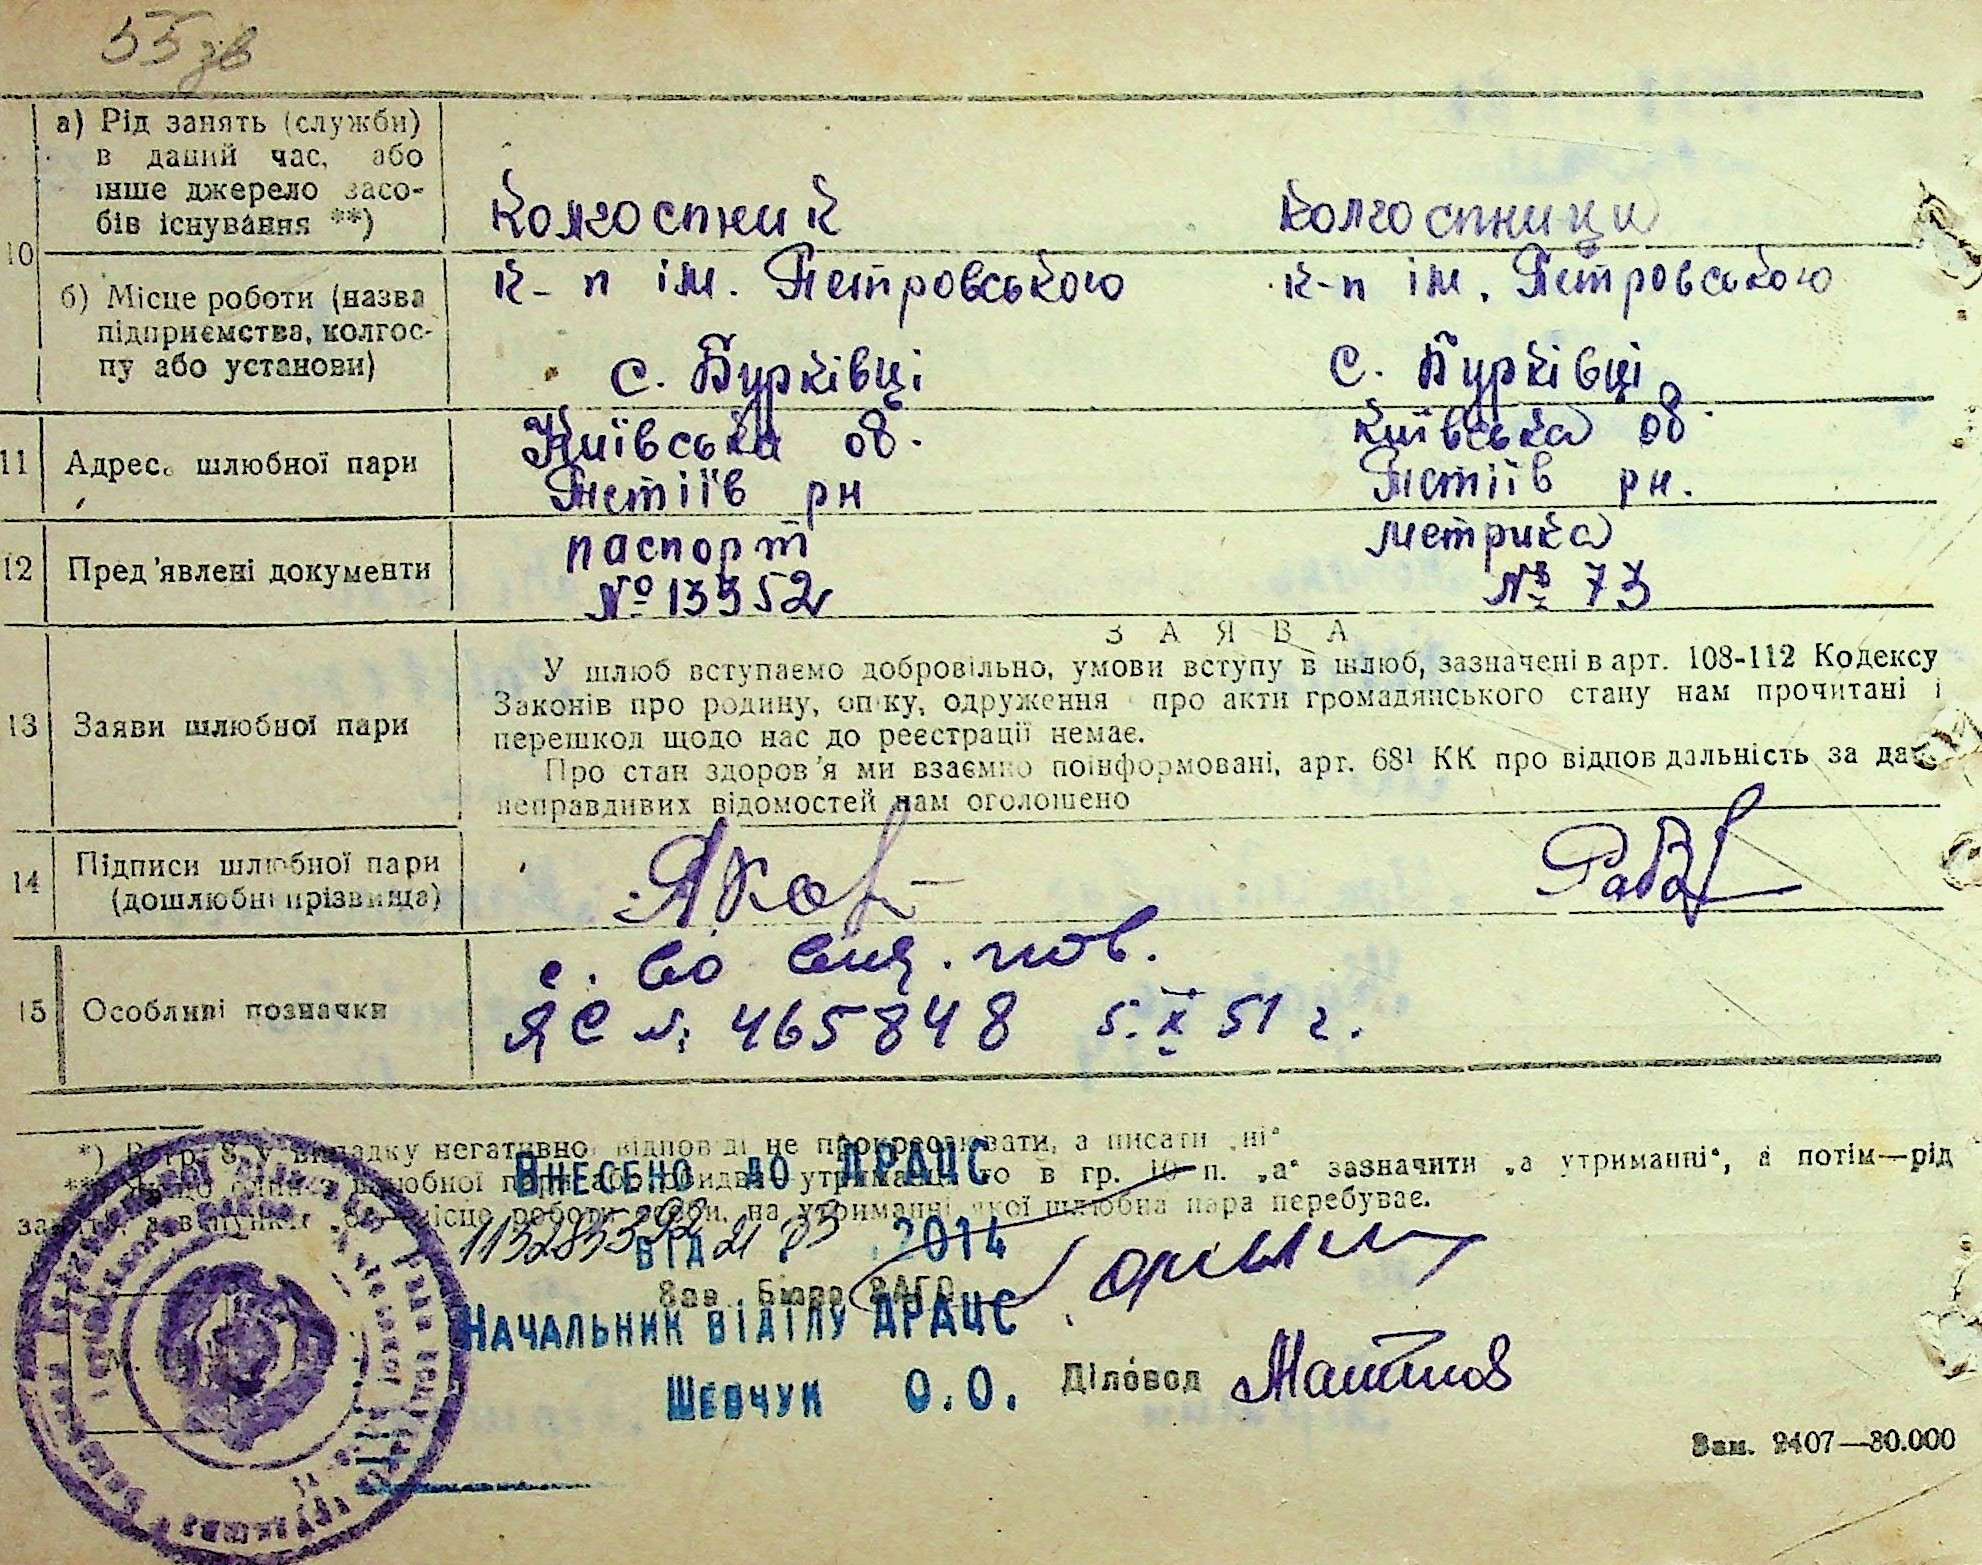 55 зв
а) Рід занять (служби)
в даний час, або
інше джерело засо-
бів існування **)
колгоспник
колгоспниця
10
б) Місце роботи (назва
підприємства, колгос-
пу або установи)
к-п ім. Петровського
к-п ім. Петровського
с. Бурківці
с. Бурківці
11 Адрес шлюбної пари
Київська об.
Київська об.
Тетіїв рн
Тетіїв рн.
12 Пред'явлені документи
паспорт
метрика
№ 13352
№ 73
13 Заяви шлюбної пари
ЗАЯВА
У шлюб вступаємо добровільно, умови вступу в шлюб, зазначені в арт. 108-112 Кодексу
Законів про родину, опіку, одруження про акти громадянського стану нам прочитані і
перешкод щодо нас до реєстрації немає.
Про стан здоров'я ми взаємно поінформовані, арт. 68¹ КК про відповідальність за дачу
неправдивих відомостей нам оголошено
14 Підписи шлюбної пари
(дошлюбні прізвища)
15 Особливі позначки
с. во выд. пов.
ЯС № 465848 5.IX 51 г.
*) В гр. 8 у випадку негативної відповіді не прокреслювати, а писати „ні“
**) Якщо один з шлюбної пари або обидва утриманці, то в гр. 10 п. „а“ зазначити „а утриманні“, а потім—рід
занять, а в пункті „б“ місце роботи особи, на утриманні якої шлюбна пара перебуває.
Внесено до ДРАЦС
від 21 03 2014
Зав. Бюро ЗАГС
Начальник відділу ДРАЦС
Шевчук О.О.
Діловод
М.
Зам. 2407—30.000